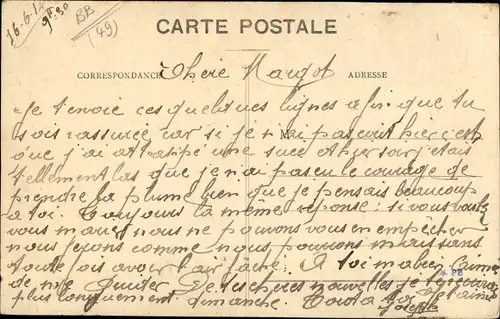 16-6-14
9H30
BB
(49)
CARTE POSTALE
CORRESPONDANCE
ADRESSE
Chere Margot
Je t'envoie ces quelques lignes afin que tu
sois rassurée car si je t'ai pas ecrit hier c'est
que j'ai attrapé une suee et hier soir j'etais
tellement las que je n'ai pas eu le courage de
prendre la plume bien que je pensais beaucoup
a toi. Toujours la même reponse: si vous voulez
vous marier nous ne pouvons vous en empêcher
nous ferons comme nous pouvons mais sans
toute fois avoir l'air fâché. A toi ma bien aimée
de nous guider De tes cheres nouvelles je t'ecrirai
plus longuement dimanche. Tout a toi
Joseph